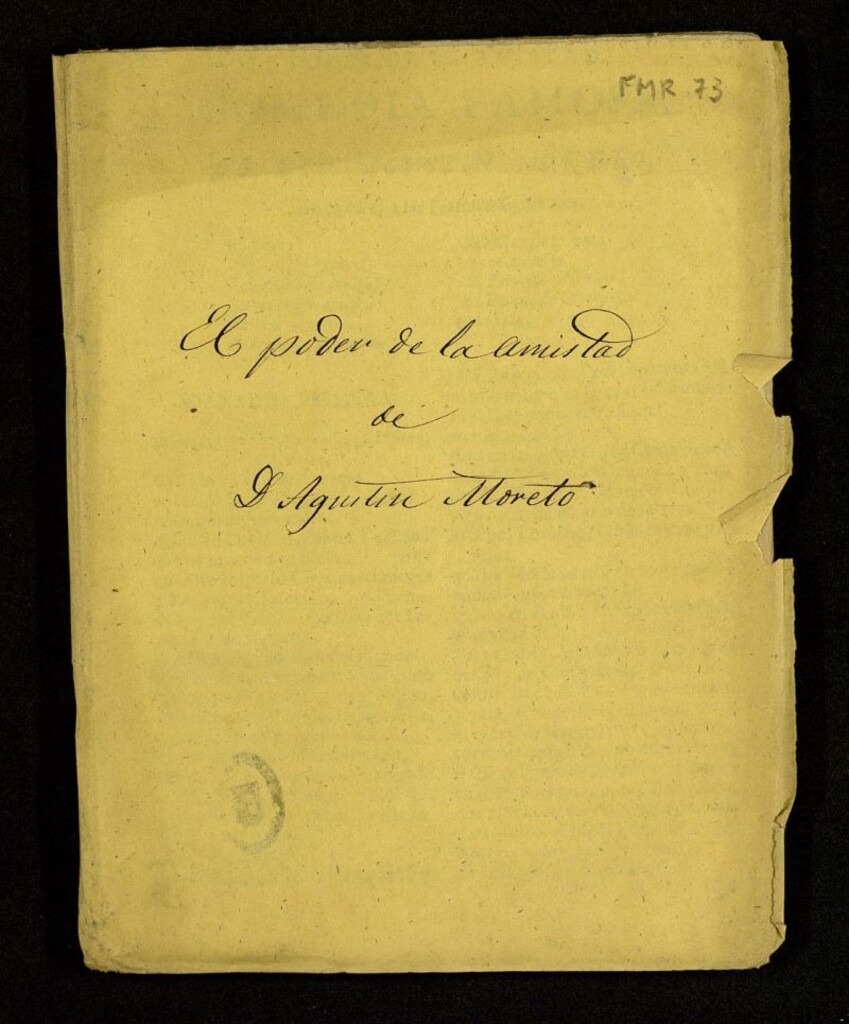 FMR 73
El poder de la amistad
de
D Agustin Moreto